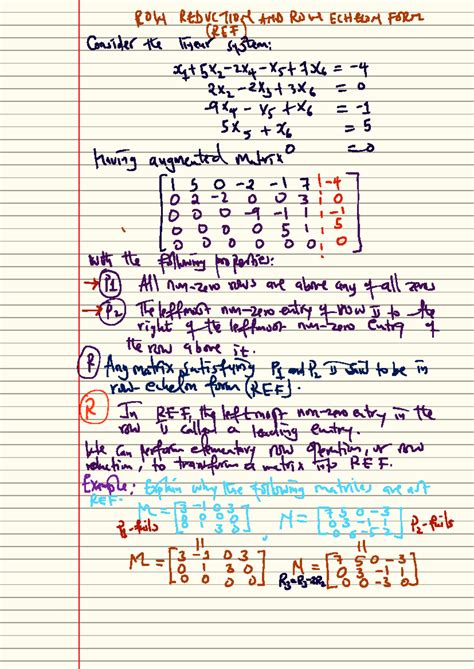 ROW REDUCTION AND ROW ECHELON FORM
(REF)
Consider the linear system:
x₁+5x₂-2x₄-x₅+7x₆ = -4
2x₂-2x₃+3x₆ = 0
-9x₄-x₅+x₆ = -1
5x₅+x₆ = 5
0 = 0
Having augmented matrix
1 5 0 -2 -1 7 | -4
0 2 -2 0 0 3 | 0
0 0 0 -9 -1 1 | -1
0 0 0 0 5 1 | 5
0 0 0 0 0 0 | 0
with the following properties:
→ P1 All non-zero rows are above any of all zeros
→ P2 The leftmost non-zero entry of row is to the
right of the leftmost non-zero entry of
the row above it.
R Any matrix satisfying P1 and P2 is said to be in
row echelon form (REF).
R In REF, the leftmost non-zero entry in the
row is called a leading entry.
We can perform elementary row operation, or row
reduction, to transform a matrix into REF.
Example: Explain why the following matrices are not
REF.
P1-fails M = [3 -1 0 3 N = P2-fails
M = [3 -1 0 3 N = [7 5 0 -3
0 1 3 0 0 3 -1 1
0 0 0 0] R₃=R₃-2R₂ 0 0 -3 0]